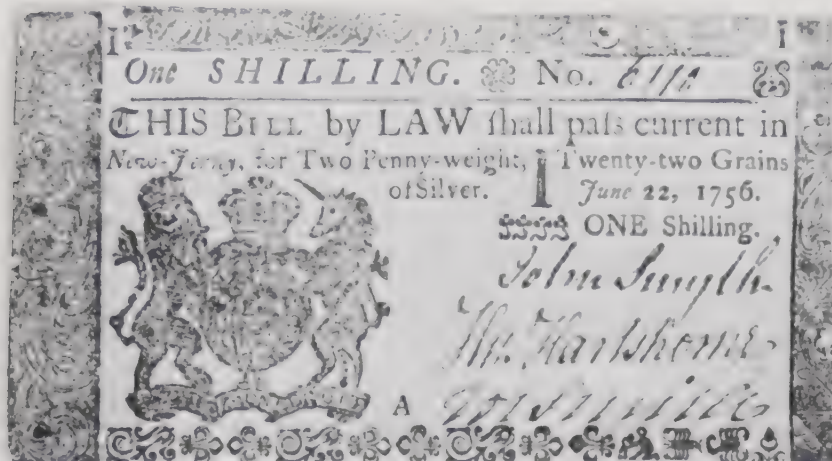 One SHILLING. No.
THIS BILL by LAW ſhall paſs current in
New-Jerſey, for Two Penny-weight, Twenty-two Grains
of Silver. June 22, 1756.
ONE Shilling.
John Smyth
Hartshorne
A